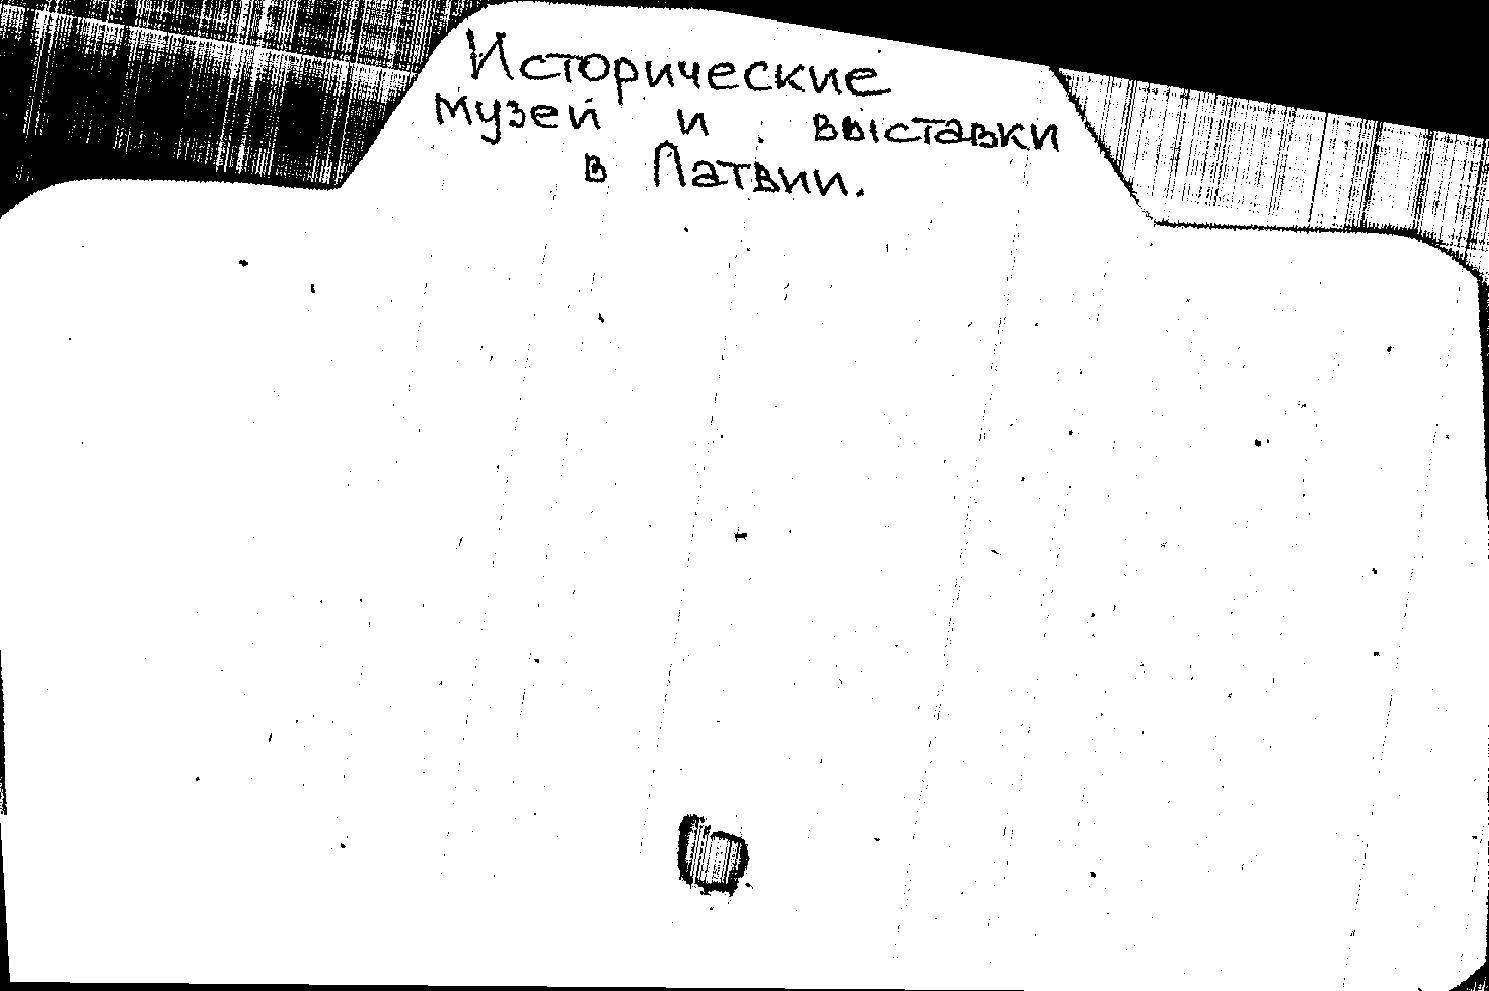 Исторические
музеи и выставки
в Латвии.